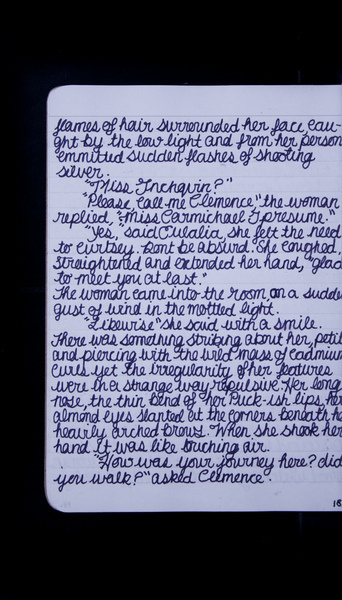 flames of hair surrounded her face cau-
ght by the low light and from her person
emmitted sudden flashes of shooting
silver.
"Miss Inchqvin?"
"Please, call me Clemence," the woman
replied, "Miss Carmichael I presume."
"Yes," said Eulalia, she felt the need
to curtsey. Dont be absurd. She coughed,
straightened and extended her hand, "glad
to meet you at last."
The woman came into the room on a sudde
gust of wind in the mottled light.
"Likewise" she said with a smile.
There was something striking about her, petit
and piercing with the wild mass of cadmium
curls yet the irregularity of her features
were in a strange way repulsive. Her long
nose, the thin bend of her Puck-ish lips, her
almond eyes slanted at the corners beneath he
heavily arched brows. When she shook her
hand it was like touching air.
"How was your journey here? did
you walk?" asked Clemence.
18